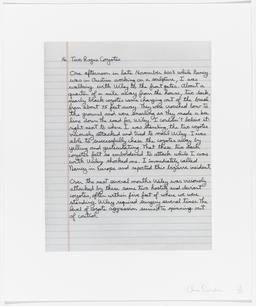 The Two Rogue Coyotes
One afternoon in late November 2003 while Nancy
was in Chatham working on a sculpture, I was
walking with Wiley to the front gates. About a
quarter of a mile away from the house, two dark,
nearly black coyotes came charging out of the brush
from about 75 feet away. They were crouched low to
the ground and were snarling as they made a bee
line down the road for Wiley. I couldn't believe it
right next to where I was standing, the two coyotes
viciously attacked and tried to maul Wiley. I was
able to successfully chase the coyotes away by
yelling and gesticulating. That these two dark
coyotes felt so emboldened to attack while I was
with Wiley shocked me. I immediately called
Nancy in Europe and reported this bizarre incident.
Over the next several months Wiley was viciously
attacked by these same two hostile and deviant
coyotes, often within five feet of where we were
standing. Wiley required surgery several times. The
level of coyote aggression seemed to be spinning out
of control.